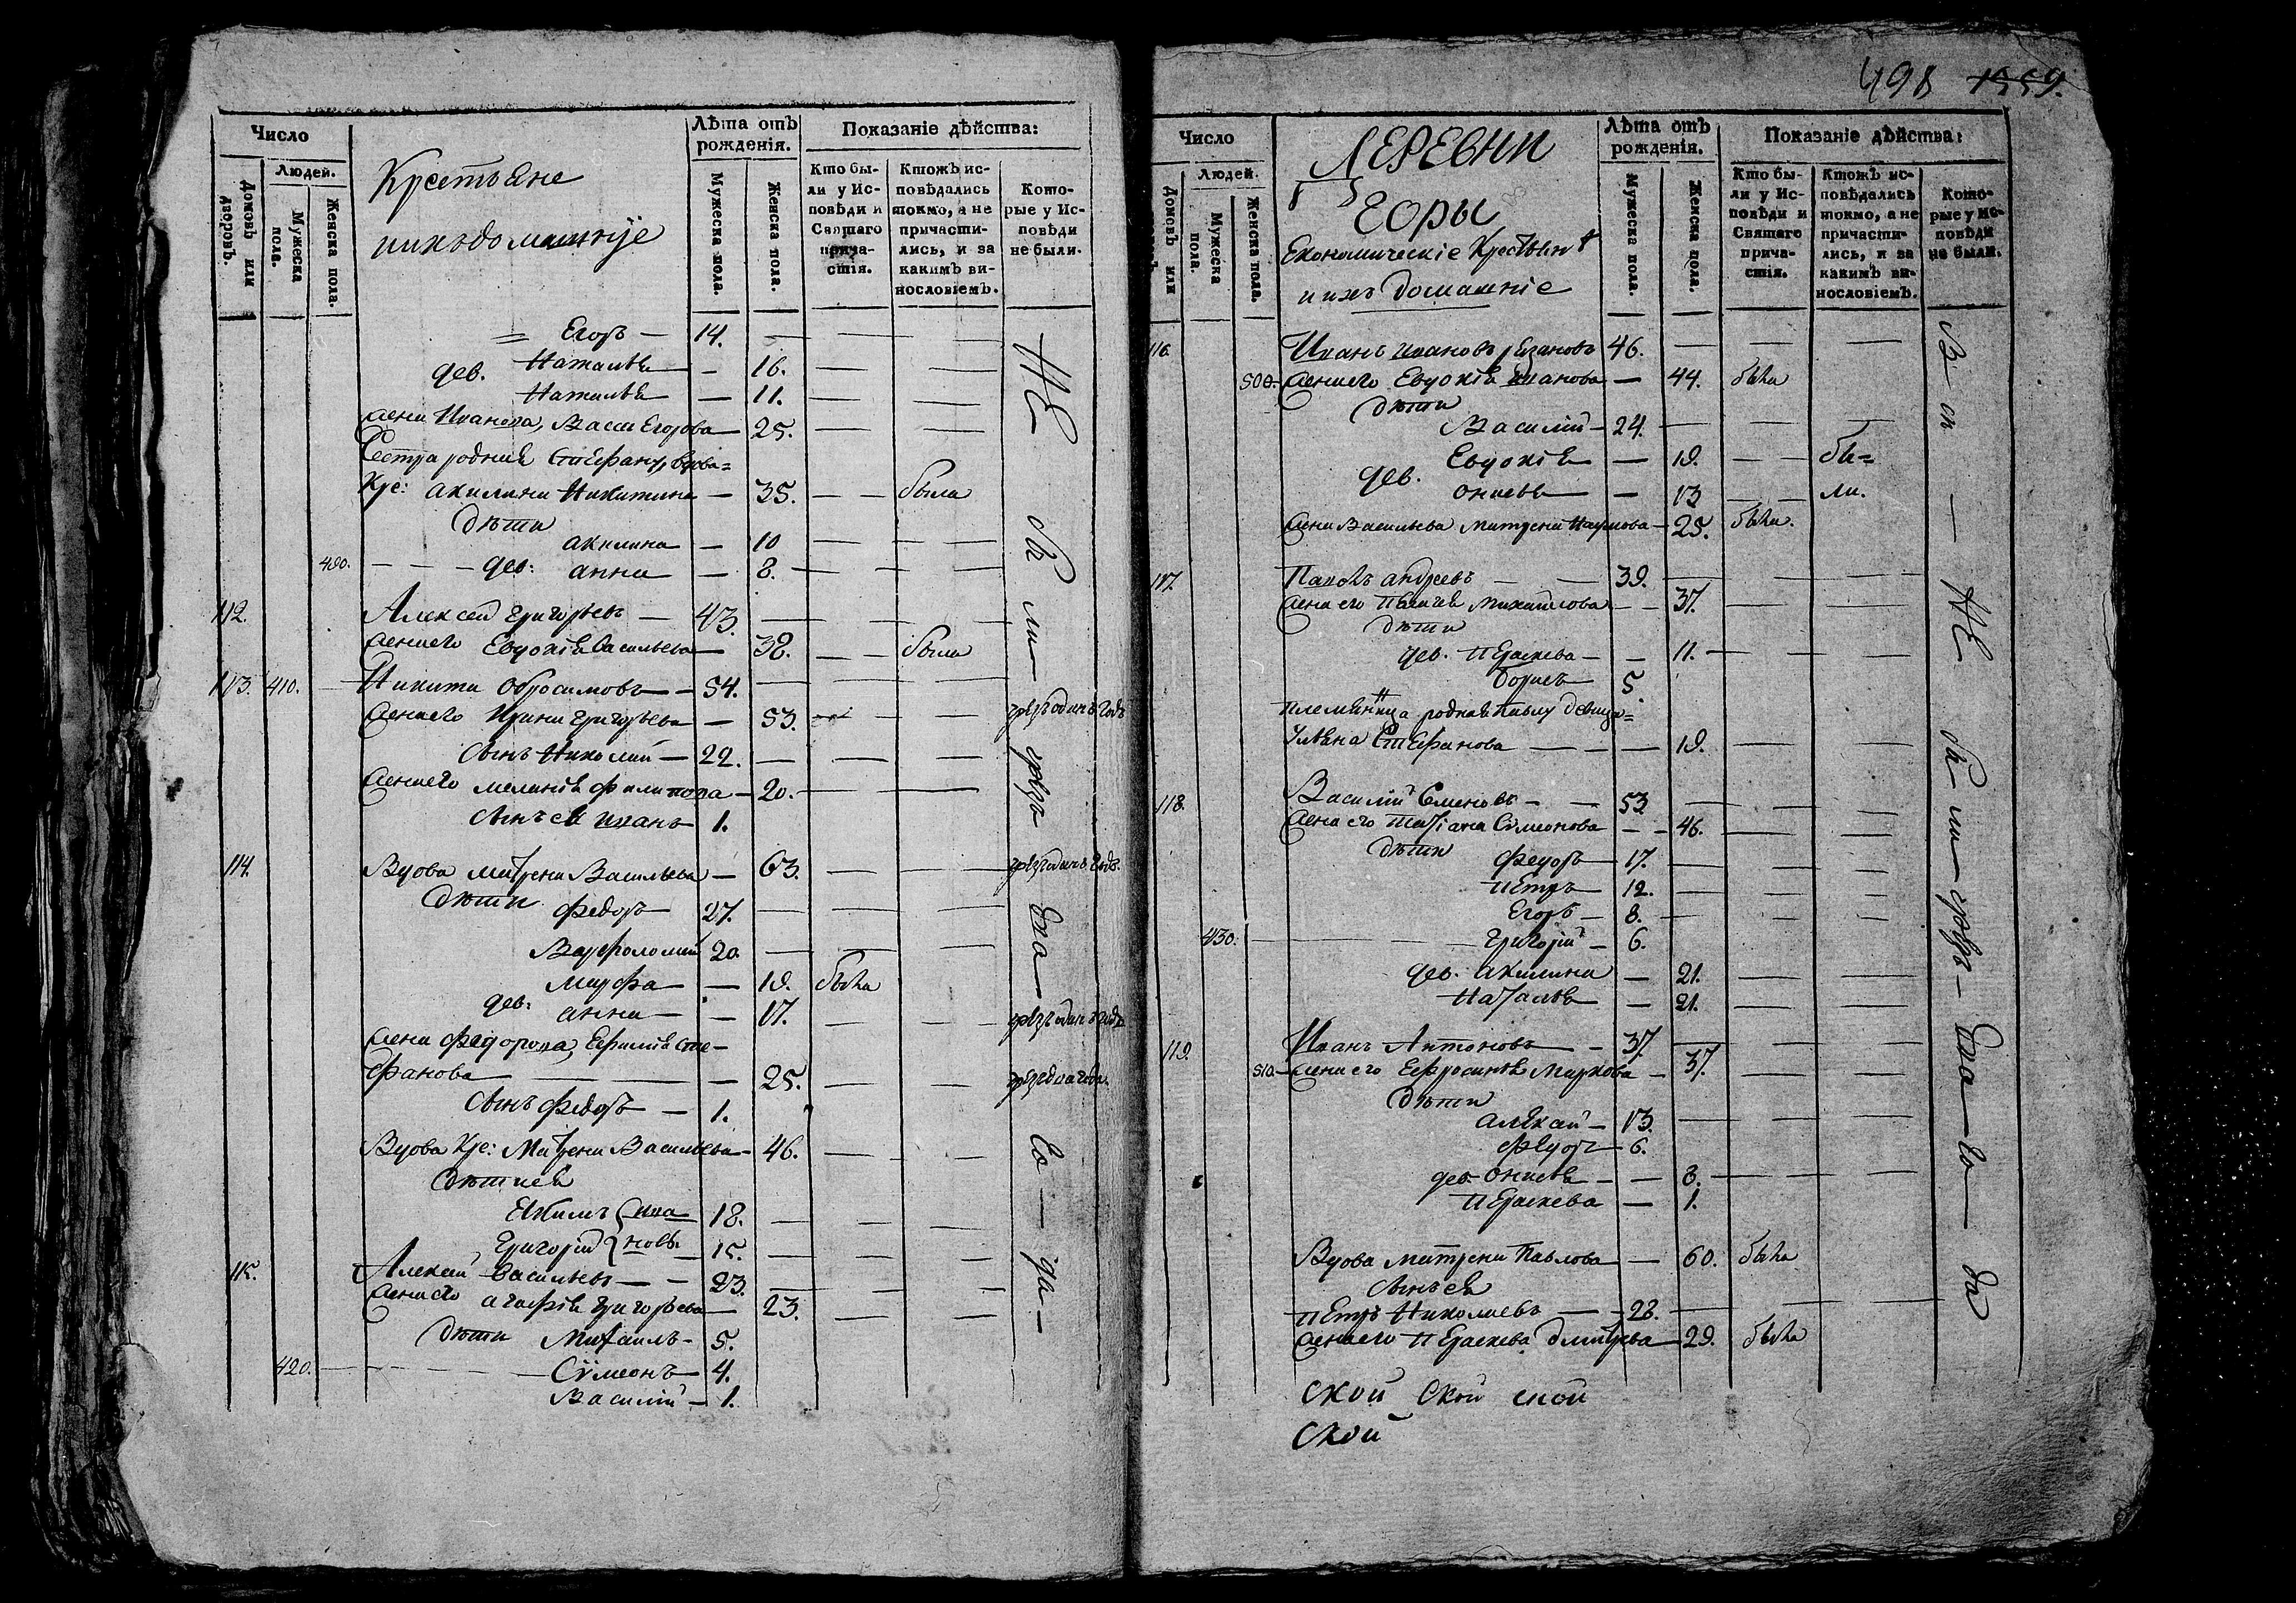 Число
Людей.
Домовъ или дворовъ.
Мужеска пола.
Женска пола.
Крестьяне
ихъ домашніе
Лѣта отъ рожденія.
Мужеска пола.
Женска пола.
Показаніе дѣйства:
Кто бы-
ли у Ис-
повѣди и
Святаго
прича-
стія.
Ктожъ ис-
повѣдались
токмо, а не
причасти-
лись, и за
какимъ ви-
нословіемъ.
Кото-
рые у Ис-
повѣди
не были.
Егоръ — 14.
дев. Наталья — 16.
Наталья — 11.
Жена Иванова, Васса Егорова — 25.
Сестра родная Стефану, вдова=
Кре: Акилина Никитина — 35. — была
дѣти
Акилина — 10
490. дев: Анна — 8.
112. Алексей Григорьевъ — 43.
Жена его Евдокія Васильева — 38. — была
113. 410. Никита Обросимовъ — 54.
Жена его Ирина Григорьева — 53. чрезъ одинъ годъ
Сынъ Николай — 22.
Жена его Меланія Филипова — 20.
Сынъ ея Иванъ 1.
114. Вдова Матрена Васильева — 63. чрезъ одинъ годъ.
Дѣти Федоръ — 27.
Варфоломей 20.
Марфа — 19. была
дев: Анна — 17. чрезъ одинъ годъ
Жена Федорова, Ефимія Сте-
фанова — 25. чрез два года.
Сынъ Федоръ — 1.
Вдова Кре: Матрена Васильева — 46.
Дѣти ея
Екимъ Ива 18.
Григорій новы 15.
115. Алексей Васильевъ — 23.
Жена его Агафія Григорьева — 23.
Дѣти Михаилъ — 5.
420. Сѵмеонъ — 4.
Василій — 1.
Не бы ли чрезъ два го да
498 1559.
Число
Людей.
Домовъ или
Мужеска пола.
Женска пола.
ДЕРЕВНИ
ГОРЫ
Економическіе Крестьяне
и ихъ домашніе
Лѣта отъ рожденія.
Мужеска пола.
Женска пола.
Показаніе дѣйства:
Кто бы-
ли у Ис-
повѣди и
Святаго
прича-
стія.
Ктожъ ис-
повѣдались
токмо, а не
причасти-
лись, и за
какимъ ви-
нословіемъ.
Кото-
рые у Ис-
повѣди
не были.
116. Иванъ Ивановъ Резановъ 46.
500. Жена его Евдокія Иванова — 44. была
Дѣти
Василій — 24.
Евдокія — 19. бы=
дев. Онисья — 13 ли.
Жена Васильева Матрена Наумова — 25. была.
117. Павелъ Андреевъ — 39.
Жена его Пелагея Михайлова — 37.
Дѣти
дев. Пераскева — 11.
Борисъ 5.
Племянница родная Павлу девица=
Ульяна Стефанова — 19.
118. Василій Семеновъ — 53
Жена его Татіана Сѵмеонова — 46.
Дѣти Федоръ — 17.
Петръ — 12.
Егоръ — 8.
430. Григорій — 6.
дев. Акилина — 21.
Наталья — 21.
119. Иванъ Антоновъ — 37.
510. Жена его Ефросинья Маркова — 37.
Дѣти
Алексей — 13.
Федоръ — 6.
дев. Онисья — 8.
Пераскева — 1.
Вдова Матрена Павлова — 60. была
Сынъ ея
Петръ Николаевъ — 28.
Жена его Пераскева Дмитрева — 29. была
ской ской ской
ской